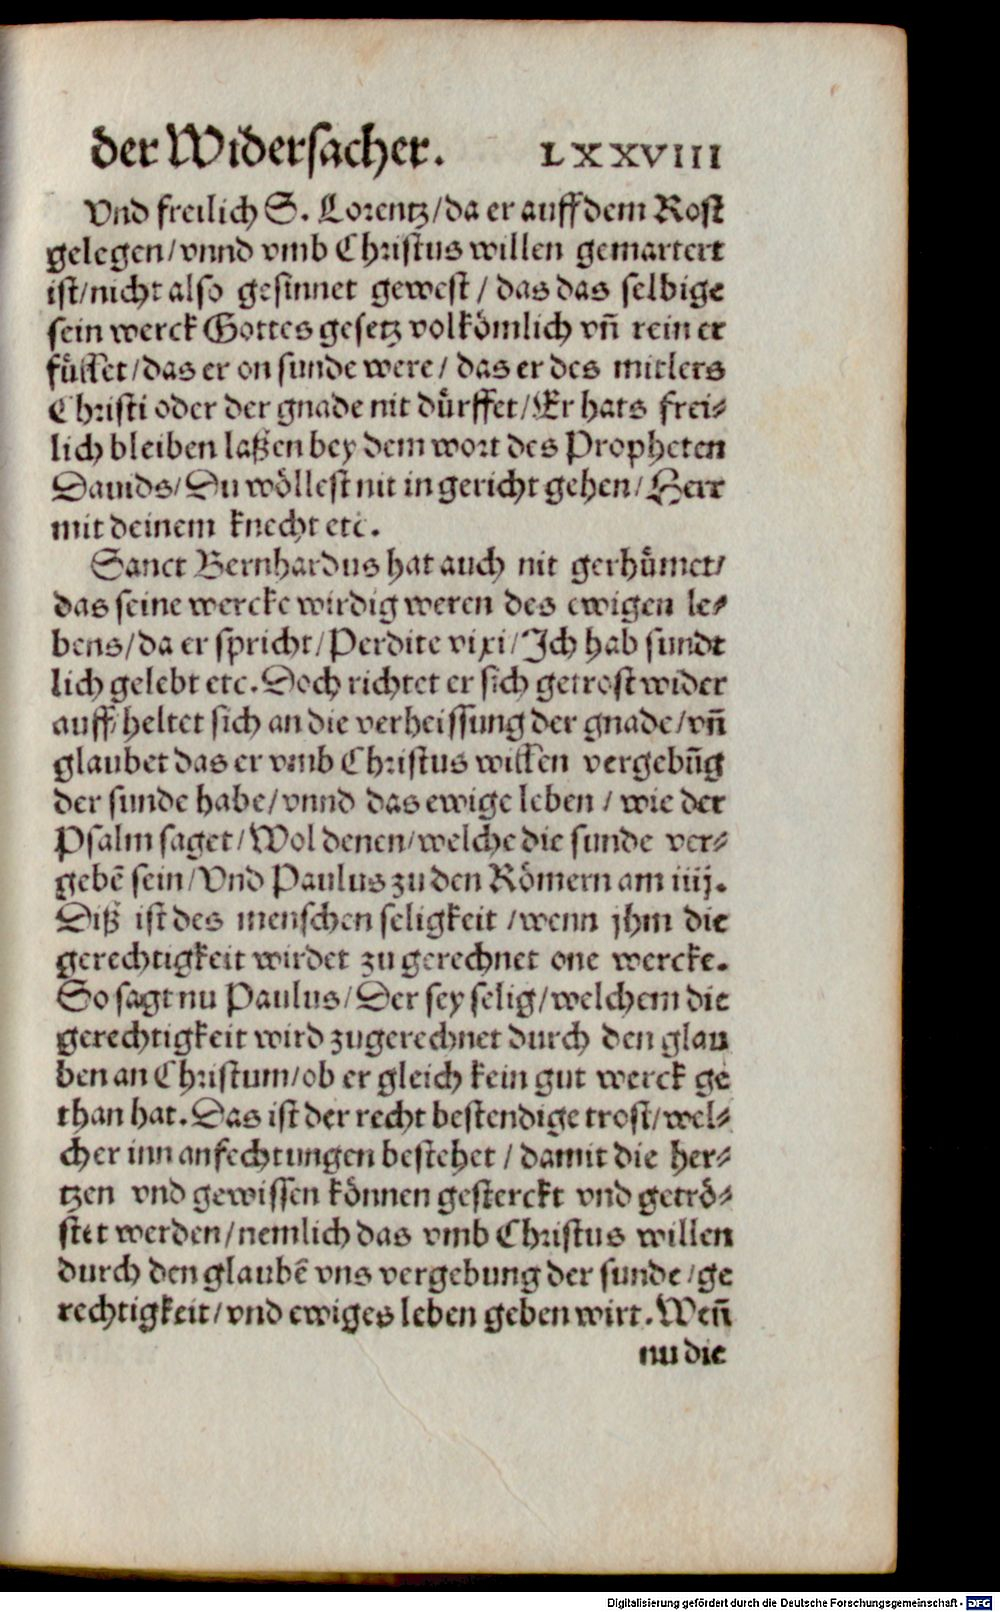 der Widersacher. LXXVIII
Vnd freilich S. Lorentz/da er auff dem Rost
gelegen/vnnd vmb Christus willen gemartert
ist/nicht also gesinnet gewest / das das selbige
sein werck Gottes gesetz volkömlich vñ rein er
füllet/das er on sunde were / das er des mitlers
Christi oder der gnade nit dürffet/Er hats frei-
lich bleiben laßen bey dem wort des Propheten
Dauids/Du wöllest nit in gericht gehen/Herr
mit deinem knecht etc.
Sanct Bernhardus hat auch nit gerhümet/
das seine wercke wirdig weren des ewigen le-
bens/da er spricht/Perdite vixi/Ich hab sundt
lich gelebt etc. Doch richtet er sich getrost wider
auff/heltet sich an die verheissung der gnade/vñ
glaubet das er vmb Christus willen vergebũg
der sunde habe/vnnd das ewige leben / wie der
Psalm saget/Wol denen/welche die sunde ver-
gebẽ sein/Vnd Paulus zu den Römern am iiij.
Diß ist des menschen seligkeit /wenn jhm die
gerechtigkeit wirdet zu gerechnet one wercke.
So sagt nu Paulus/Der sey selig/welchem die
gerechtigkeit wird zugerechnet durch den glau
ben an Christum/ob er gleich kein gut werck ge
than hat. Das ist der recht bestendige trost/wel-
cher inn anfechtungen bestehet / damit die her-
tzen vnd gewissen können gesterckt vnd getrö-
stet werden/nemlich das vmb Christus willen
durch den glaubẽ vns vergebung der sunde/ge
rechtigkeit/vnd ewiges leben geben wirt. Weñ
nu die
Digitalisierung gefördert durch die Deutsche Forschungsgemeinschaft - DFG